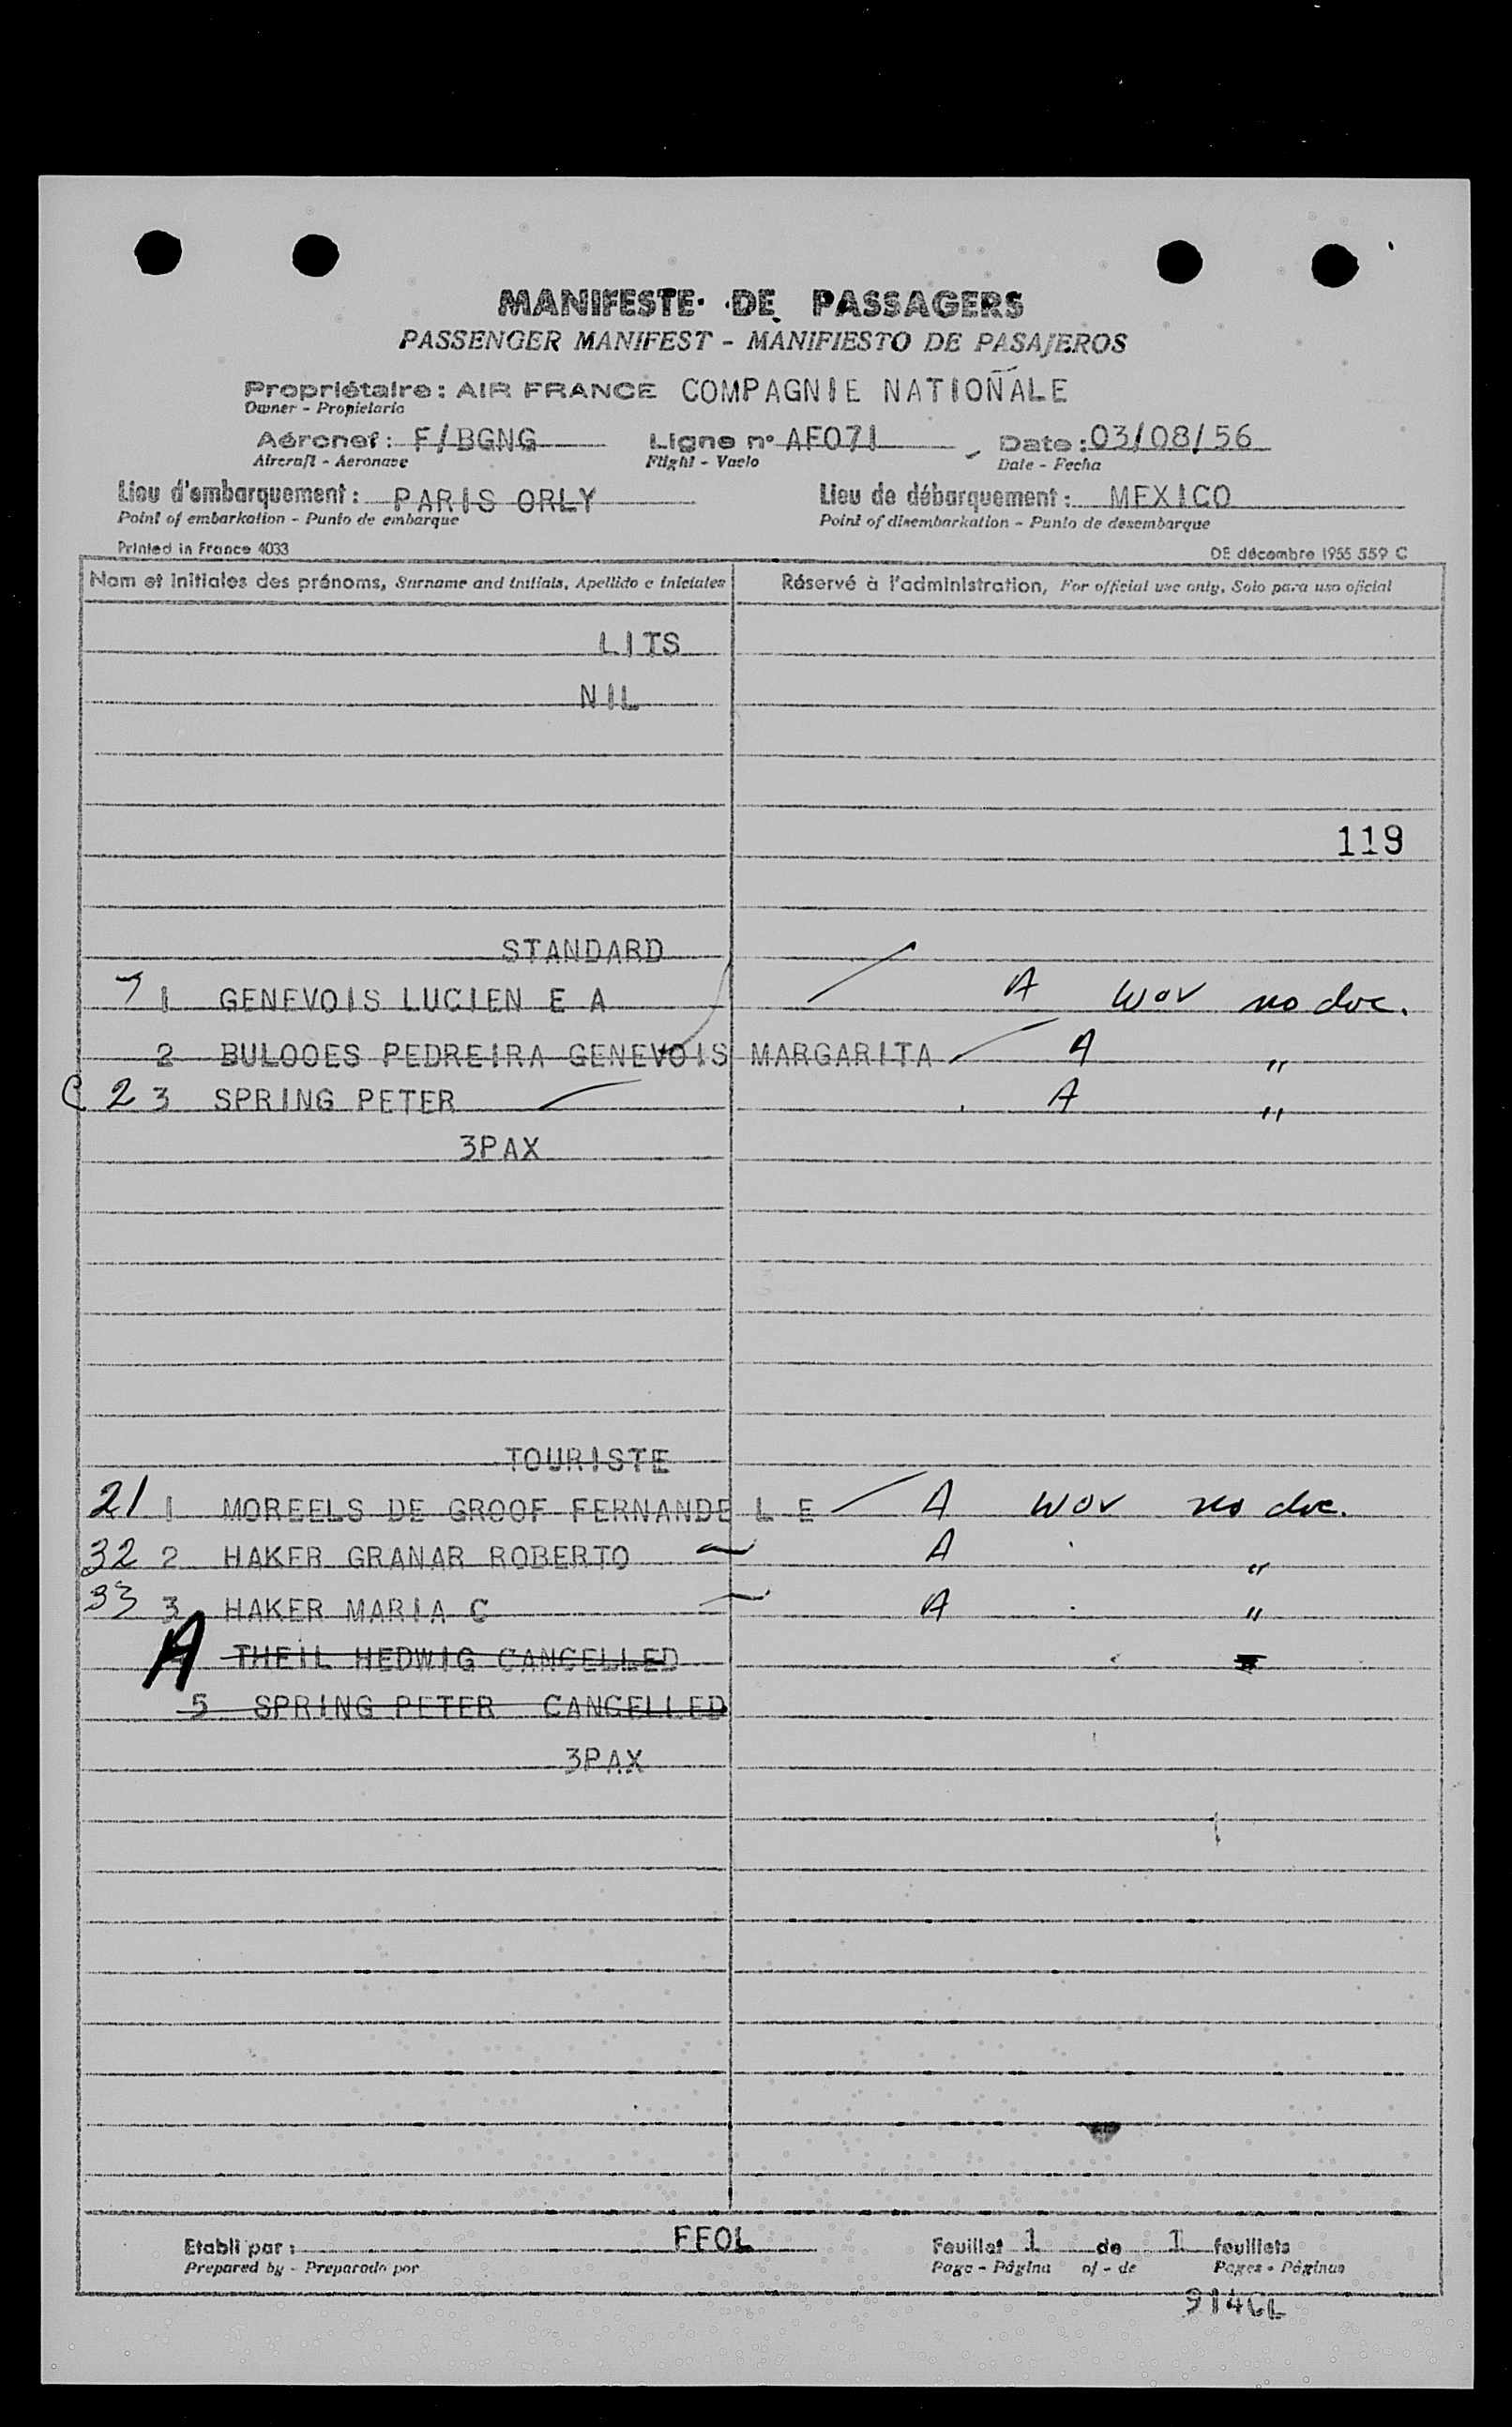 MANIFESTE DE PASSAGERS
PASSENGER MANIFEST - MANIFIESTO DE PASAJEROS
Propriétaire : AIR FRANCE COMPAGNIE NATIONALE
Owner - Propietario
Aéronef : F/BGNG Ligne n° AF071 Date : 03/08/56
Aircraft - Aeronave Flight - Vuelo Date - Fecha
Lieu d'embarquement : PARIS ORLY Lieu de débarquement : MEXICO
Point of embarkation - Punto de embarque Point of disembarkation - Punto de desembarque
Printed in France 4033 DE décembre 1955 559 C
Nom et initiales des prénoms, Surname and initials, Apellido e iniciales Réservé à l'administration, For official use only, Solo para uso oficial
LITS
NIL
119
STANDARD
1 GENEVOIS LUCIEN E A A wov no doc.
2 BULOOES PEDREIRA GENEVOIS MARGARITA A "
C 2 3 SPRING PETER A "
3PAX
TOURISTE
21 1 MOREELS DE GROOF FERNANDE L E A wov no doc.
32 2 HAKER GRANAR ROBERTO A "
33 3 HAKER MARIA C A "
A THEIL HEDWIG CANCELLED
5 SPRING PETER CANCELLED
3PAX
Etabli par : FFOL Feuillet 1 de 1 feuillets
Prepared by - Preparado por Page - Página of - de Pages - Páginas
914CL